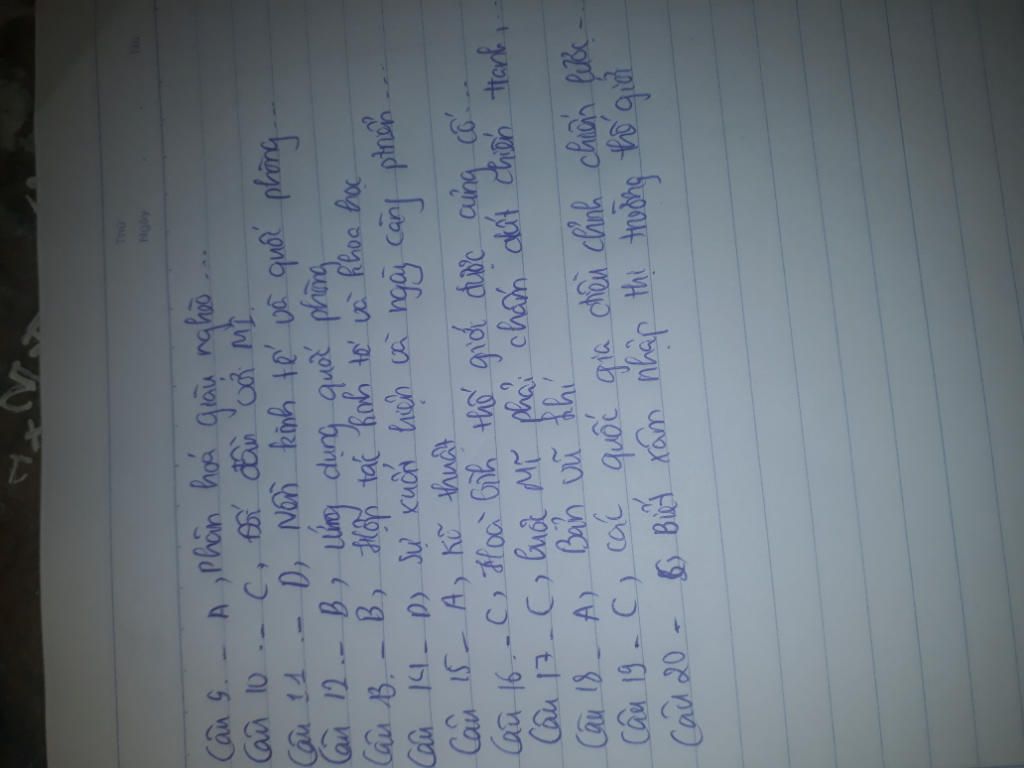 Thứ
Ngày
No.
Câu 9. - A, Phân hoá giàu nghèo...
Câu 10. - C, Đối đầu với Mĩ.
Câu 11. - D, Nền kinh tế và quốc phòng...
Câu 12. - B, ứng dụng quốc phòng
Câu 13. - B, Hợp tác kinh tế và khoa học
Câu 14 - D, Sự xuất hiện và ngày càng phtriển...
Câu 15 - A, Kĩ thuật
Câu 16. - C, Hoà bình thế giới được củng cố...
Câu 17 - C, buộc Mĩ phải chấm dứt chiến tranh,...
Câu 18 - A, Bán vũ khí
Câu 19 - C, các quốc gia điều chỉnh chiến lược-...
Câu 20 - B, Biết xâm nhập thị trường thế giới